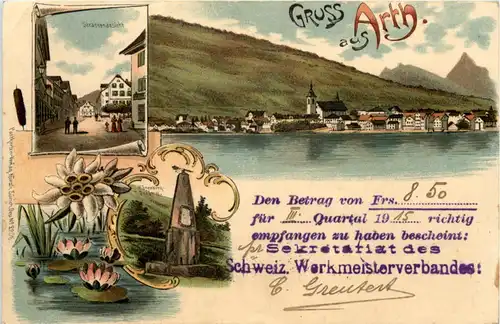 Gruss aus Arth.
Strassenansicht
Den Betrag von Frs. 8.50
für III. Quartal 1915 richtig
empfangen zu haben bescheint:
pr Sekretariat des
Schweiz. Werkmeisterverbandes:
C. Greutert